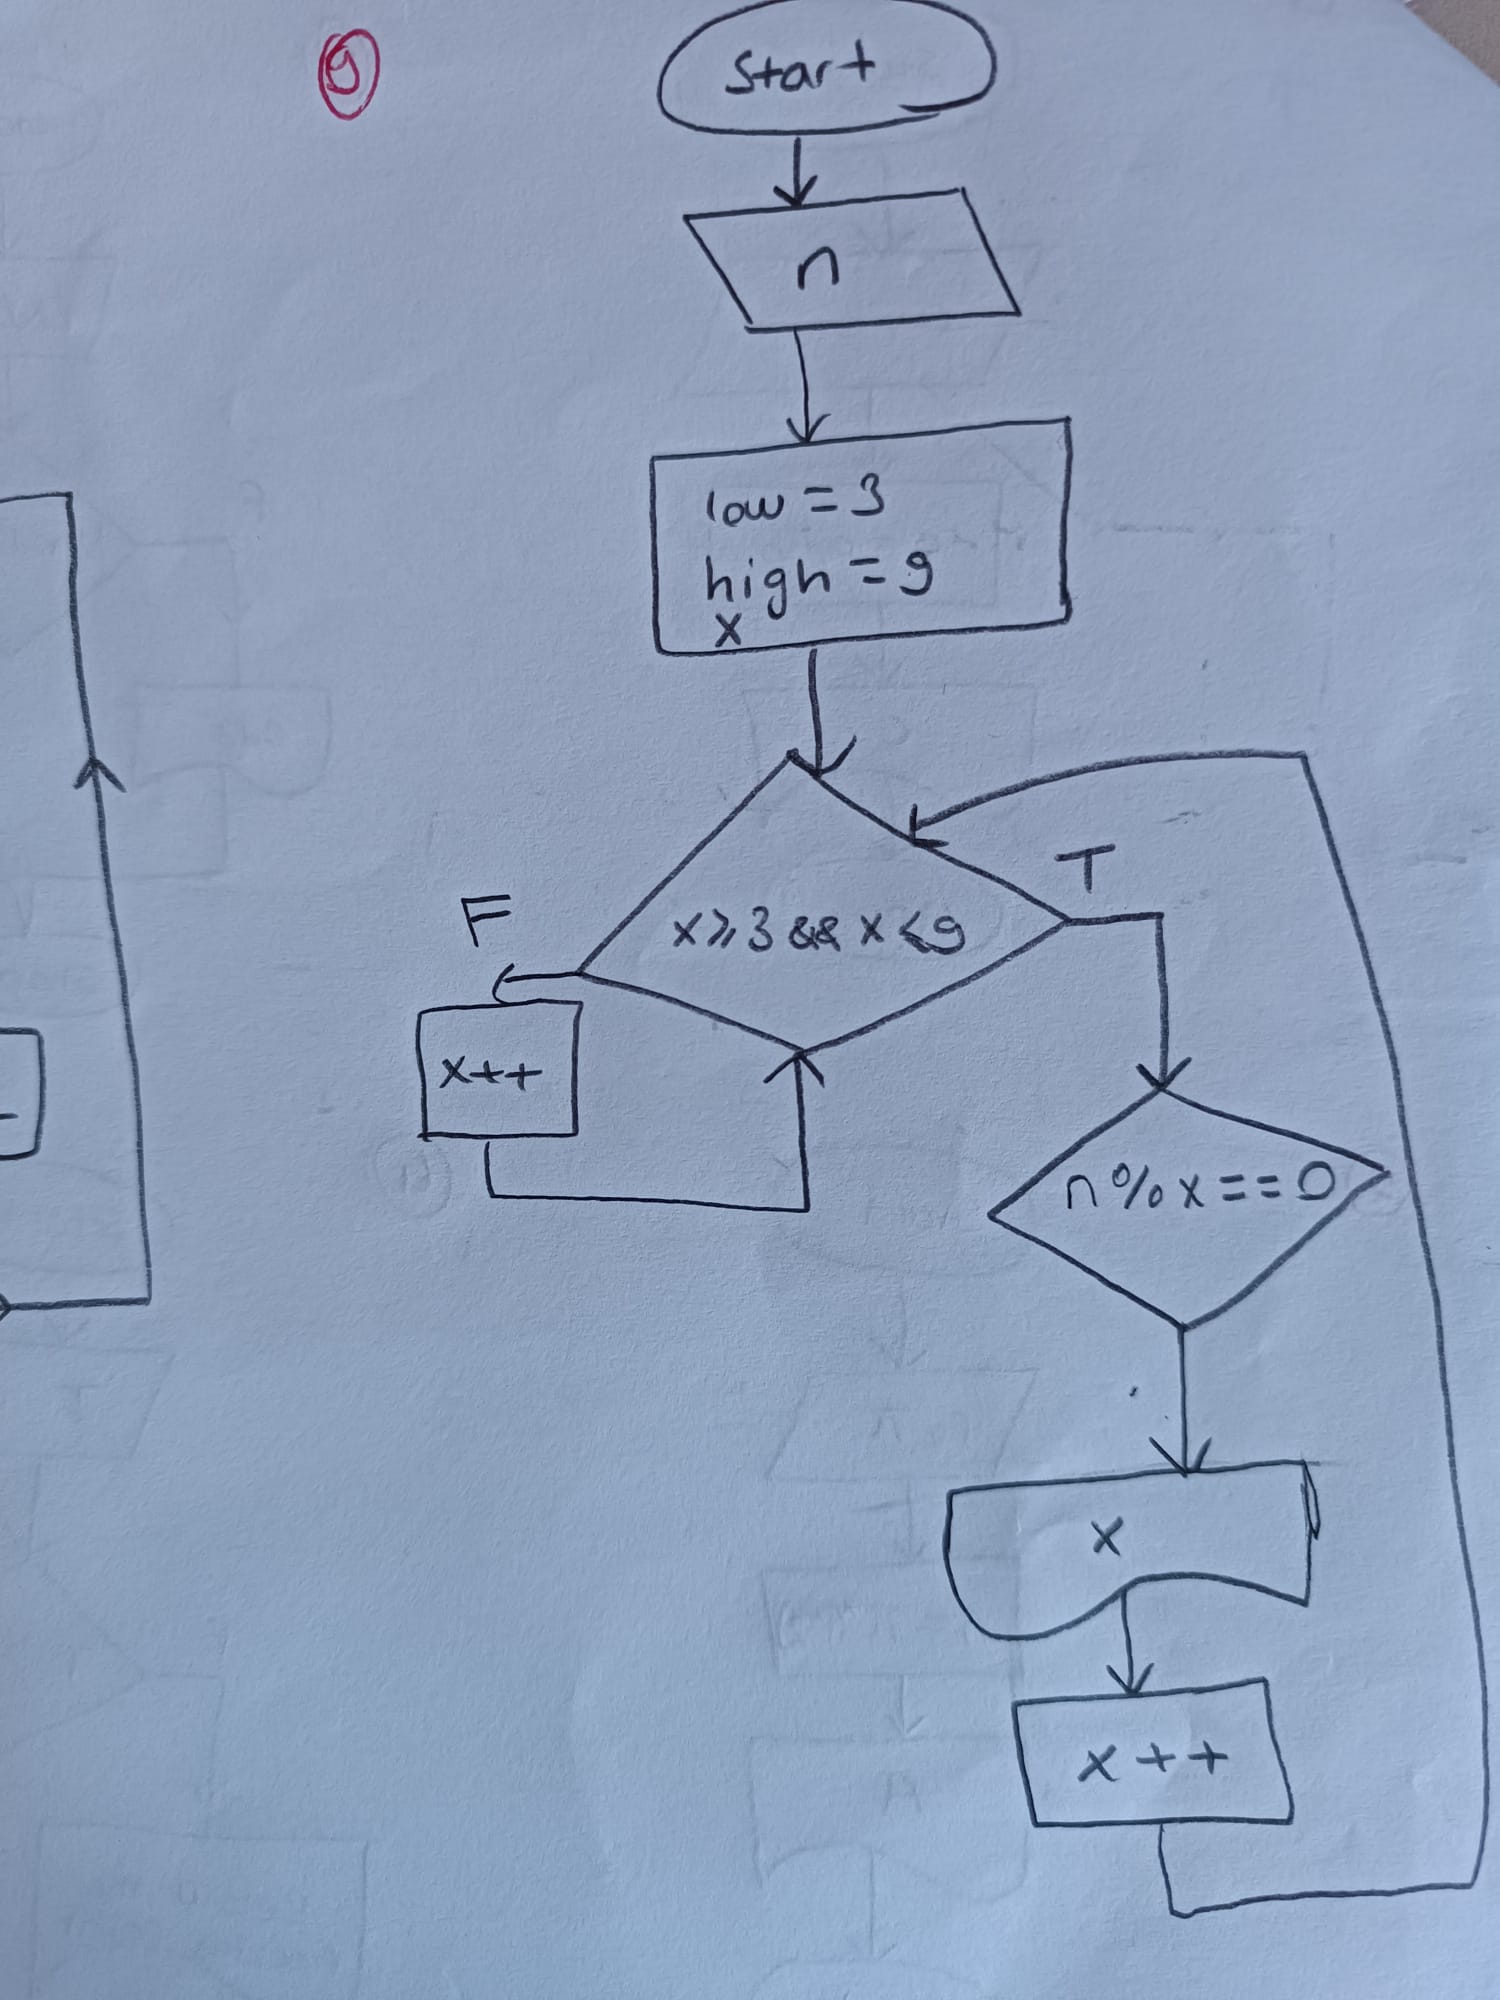 9
Start
n
low = 3
high = 9
x
x ⩾ 3 && x ⩽ 9
T
F
x++
n % x == 0
x
x++